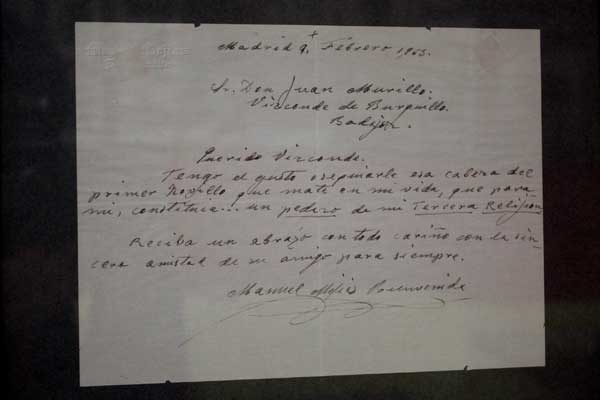 +
Madrid 9. Febrero 1963.
Sr. Don Juan Murillo.
Vizconde de Burguillo.
Badajoz.
Querido Vizconde.
Tengo el gusto esa cabeza del
primer Novillo que maté en mi vida, que para
mi, constituia... un pedazo de mi Tercera Religion
Reciba un abrazo con todo cariño con la sin-
cera amistad de su amigo para siempre.
Manuel Mejias Bienvenida